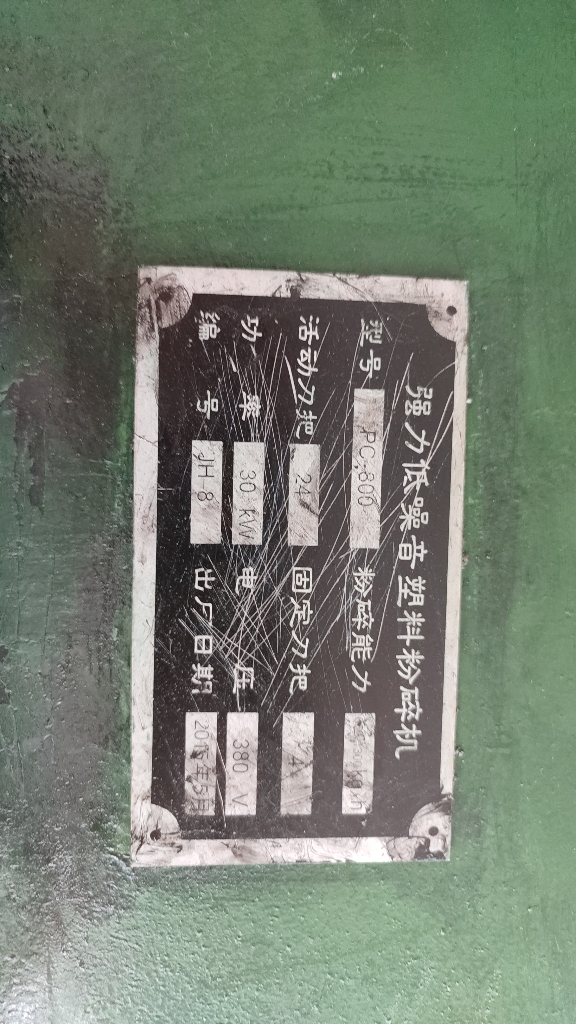 强力低噪音塑料粉碎机
型号 PC-800 粉碎能力 kg/h
活动刀把 24 固定刀把 4
功率 30 kW 电压 380 V
编号 JH-8 出厂日期 2015年5月